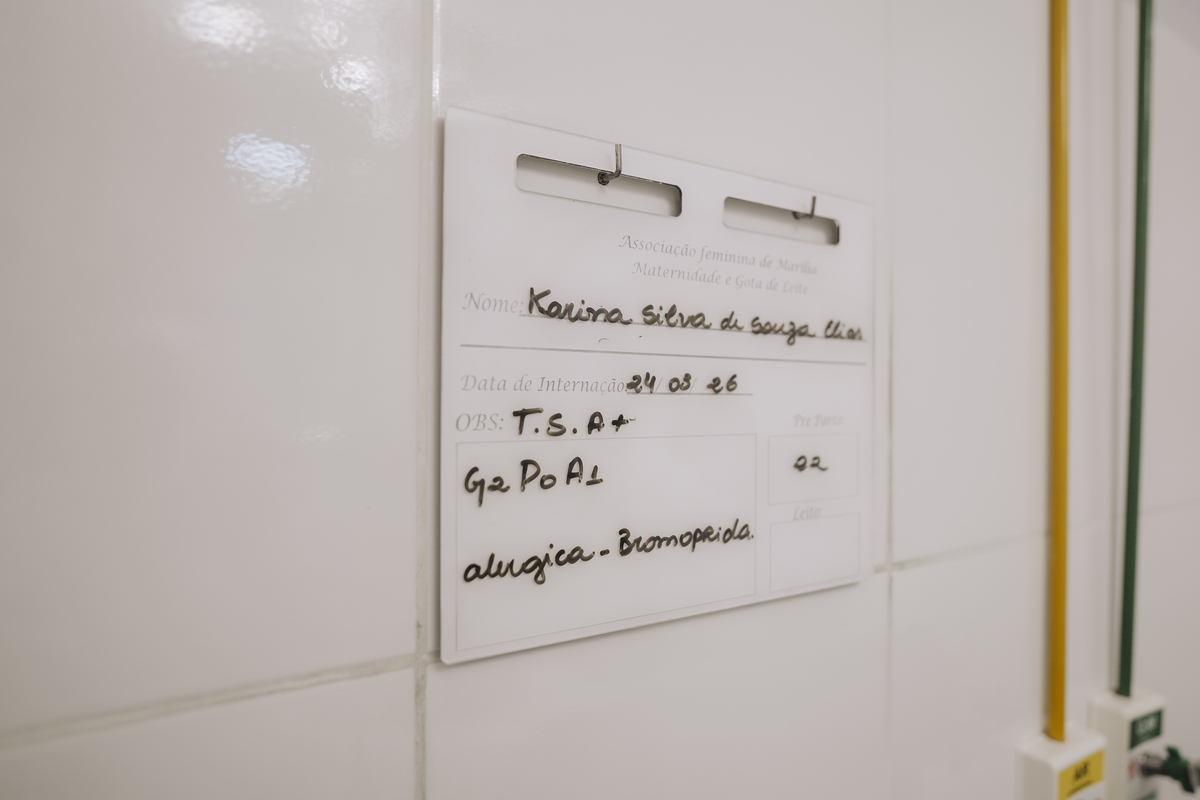 Associação feminina de Marília
Maternidade e Gota de Leite
Nome: Karina Silva de Souza Elias
Data de Internação: 24/03/26
OBS: T.S. A+
Pré Parto
G2 P0 A1
02
Leito
alergica - Bromoprida.
AR